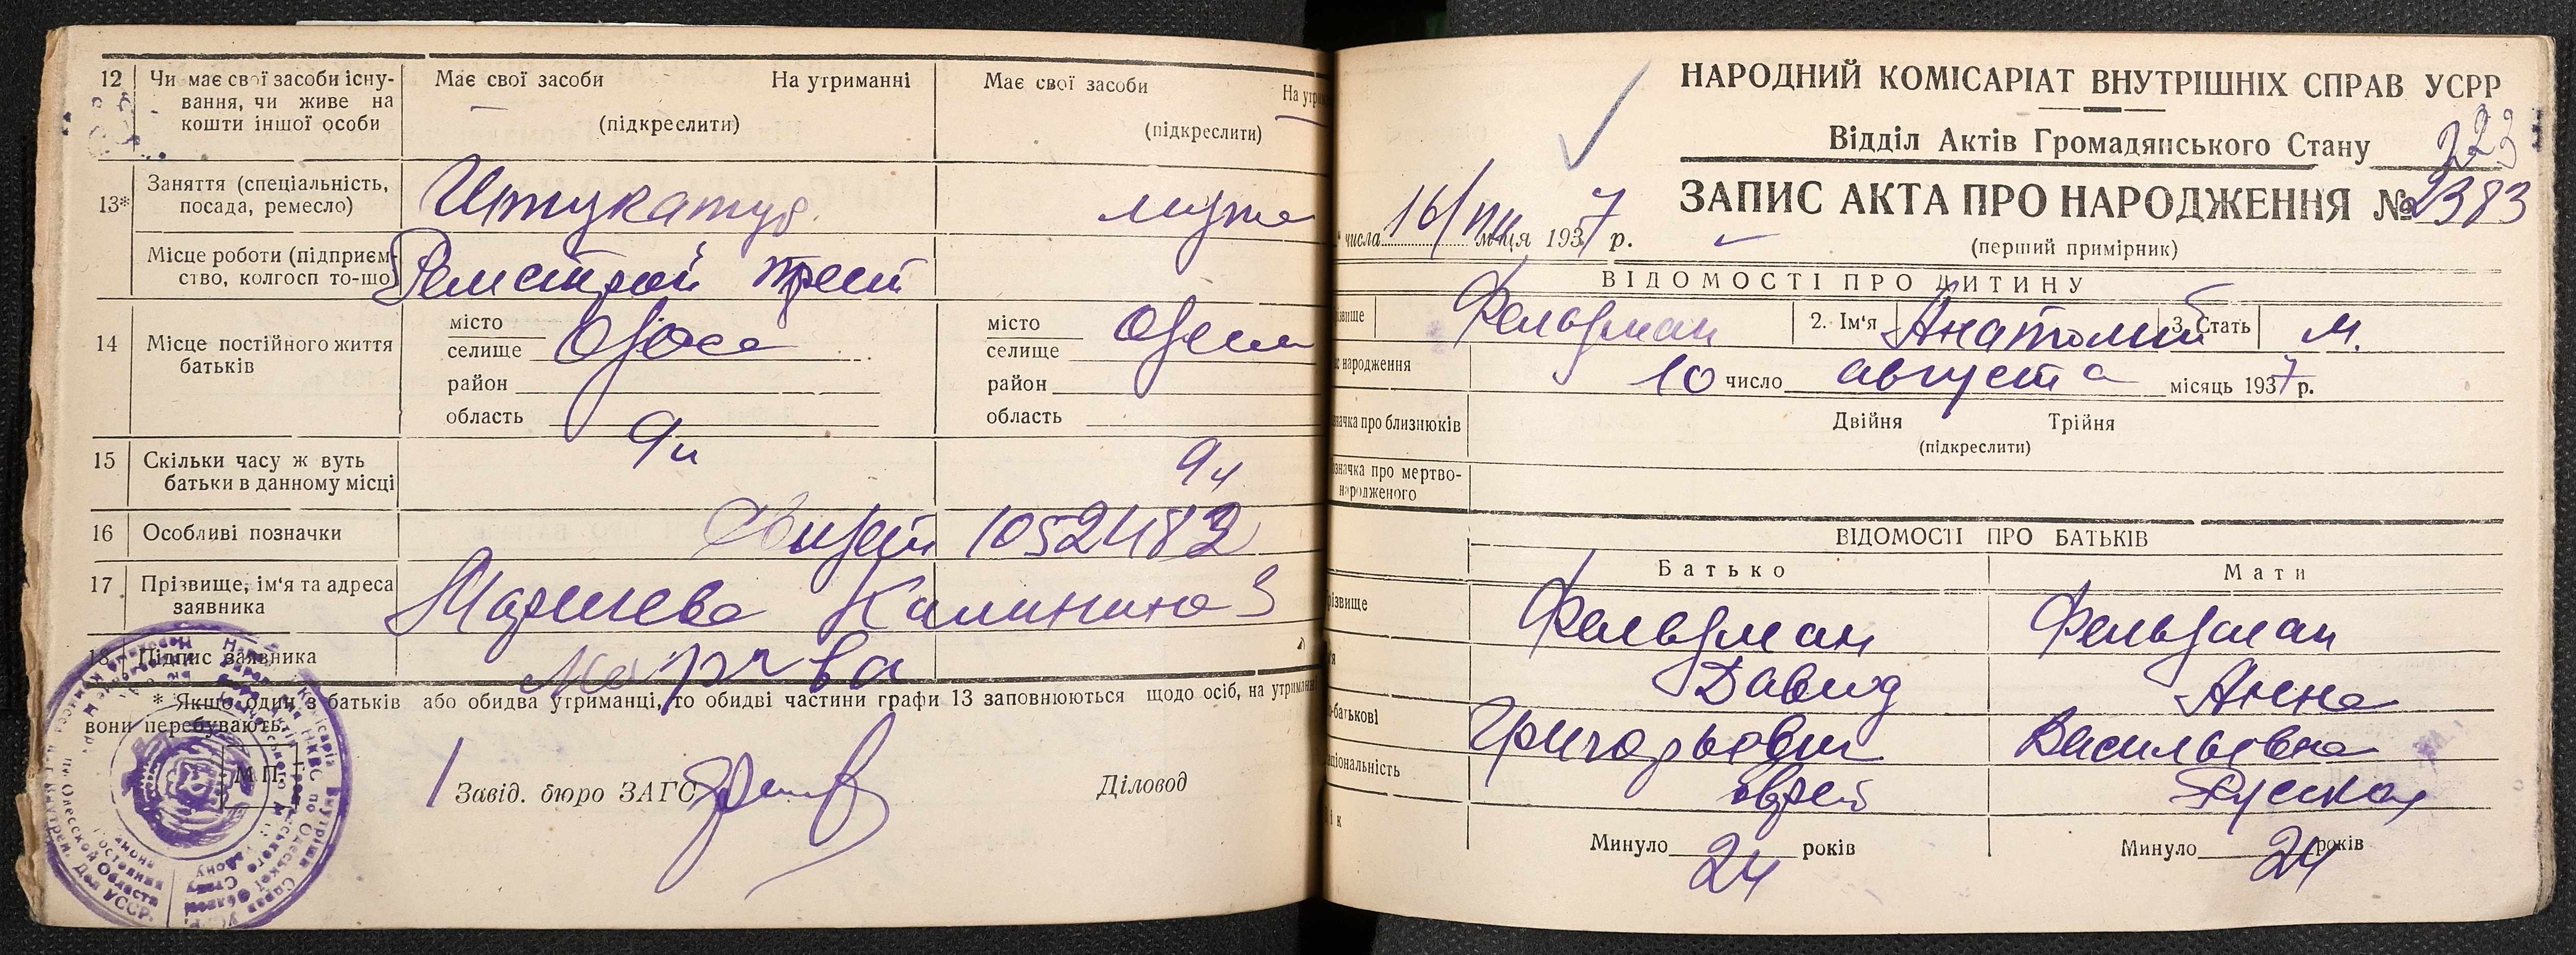 12 Чи має свої засоби існу-
вання, чи живе на
кошти іншої особи
Має свої засоби На утриманні
(підкреслити)
Має свої засоби
(підкреслити)
13* Заняття (спеціальність,
посада, ремесло)
Штукатур
мужа
Місце роботи (підприєм-
ство, колгосп то-що)
Ремстрой трест
14 Місце постійного життя
батьків
місто
селище Одеса
район
область
місто
селище Одеса
район
область
15 Скільки часу ж вуть
батьки в данному місці
16 Особливі позначки
1052483
17 Прізвище, ім'я та адреса
заявника
Калинина 3
18 Підпис заявника
* Якщо один з батьків або обидва утриманці, то обидві частини графи 13 заповнюються щодо осіб, на утриманні
вони перебувають.
М.П.
Завід. бюро ЗАГС
Діловод
НАРОДНИЙ КОМІСАРІАТ ВНУТРІШНІХ СПРАВ УСРР
Відділ Актів Громадянського Стану
223
ЗАПИС АКТА ПРО НАРОДЖЕННЯ № 2383
числа 16/VIII м-ця 1937 р.
(перший примірник)
ВІДОМОСТІ ПРО ДИТИНУ
Фельдман 2. Ім'я Анатолий 3. Стать М.
народження
10 число августа місяць 1937 р.
начка про близнюків
Двійня Трійня
(підкреслити)
значка про мертво-
народженого
ВІДОМОСТІ ПРО БАТЬКІВ
Батько Мати
різвище Фельдман Фельдман
Давид Анна
-батькові Григорьевич Васильевна
аціональність еврей Русская
ік
Минуло 24 років
Минуло 24 років